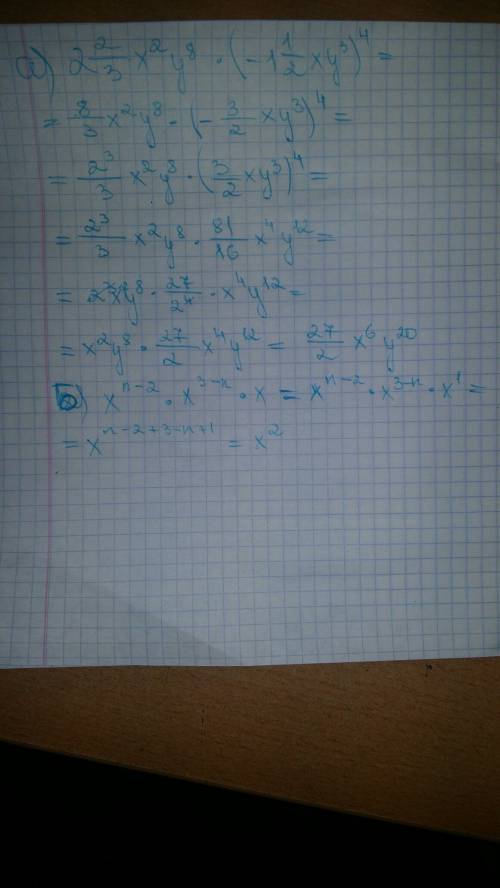 а) 2 2/3 x²y⁸ · (-1 1/2 xy³)⁴ =
= 8/3 x²y⁸ · (- 3/2 xy³)⁴ =
= 2³/3 x²y⁸ · (3/2 xy³)⁴ =
= 2³/3 x²y⁸ · 81/16 x⁴y¹² =
= 2³x²y⁸ · 27/2⁴ · x⁴y¹² =
= x²y⁸ · 27/2 x⁴y¹² = 27/2 x⁶y²⁰
б) xⁿ⁻² · x³⁻ⁿ · x = xⁿ⁻² · x³⁻ⁿ · x¹ =
= xⁿ⁻²⁺³⁻ⁿ⁺¹ = x²